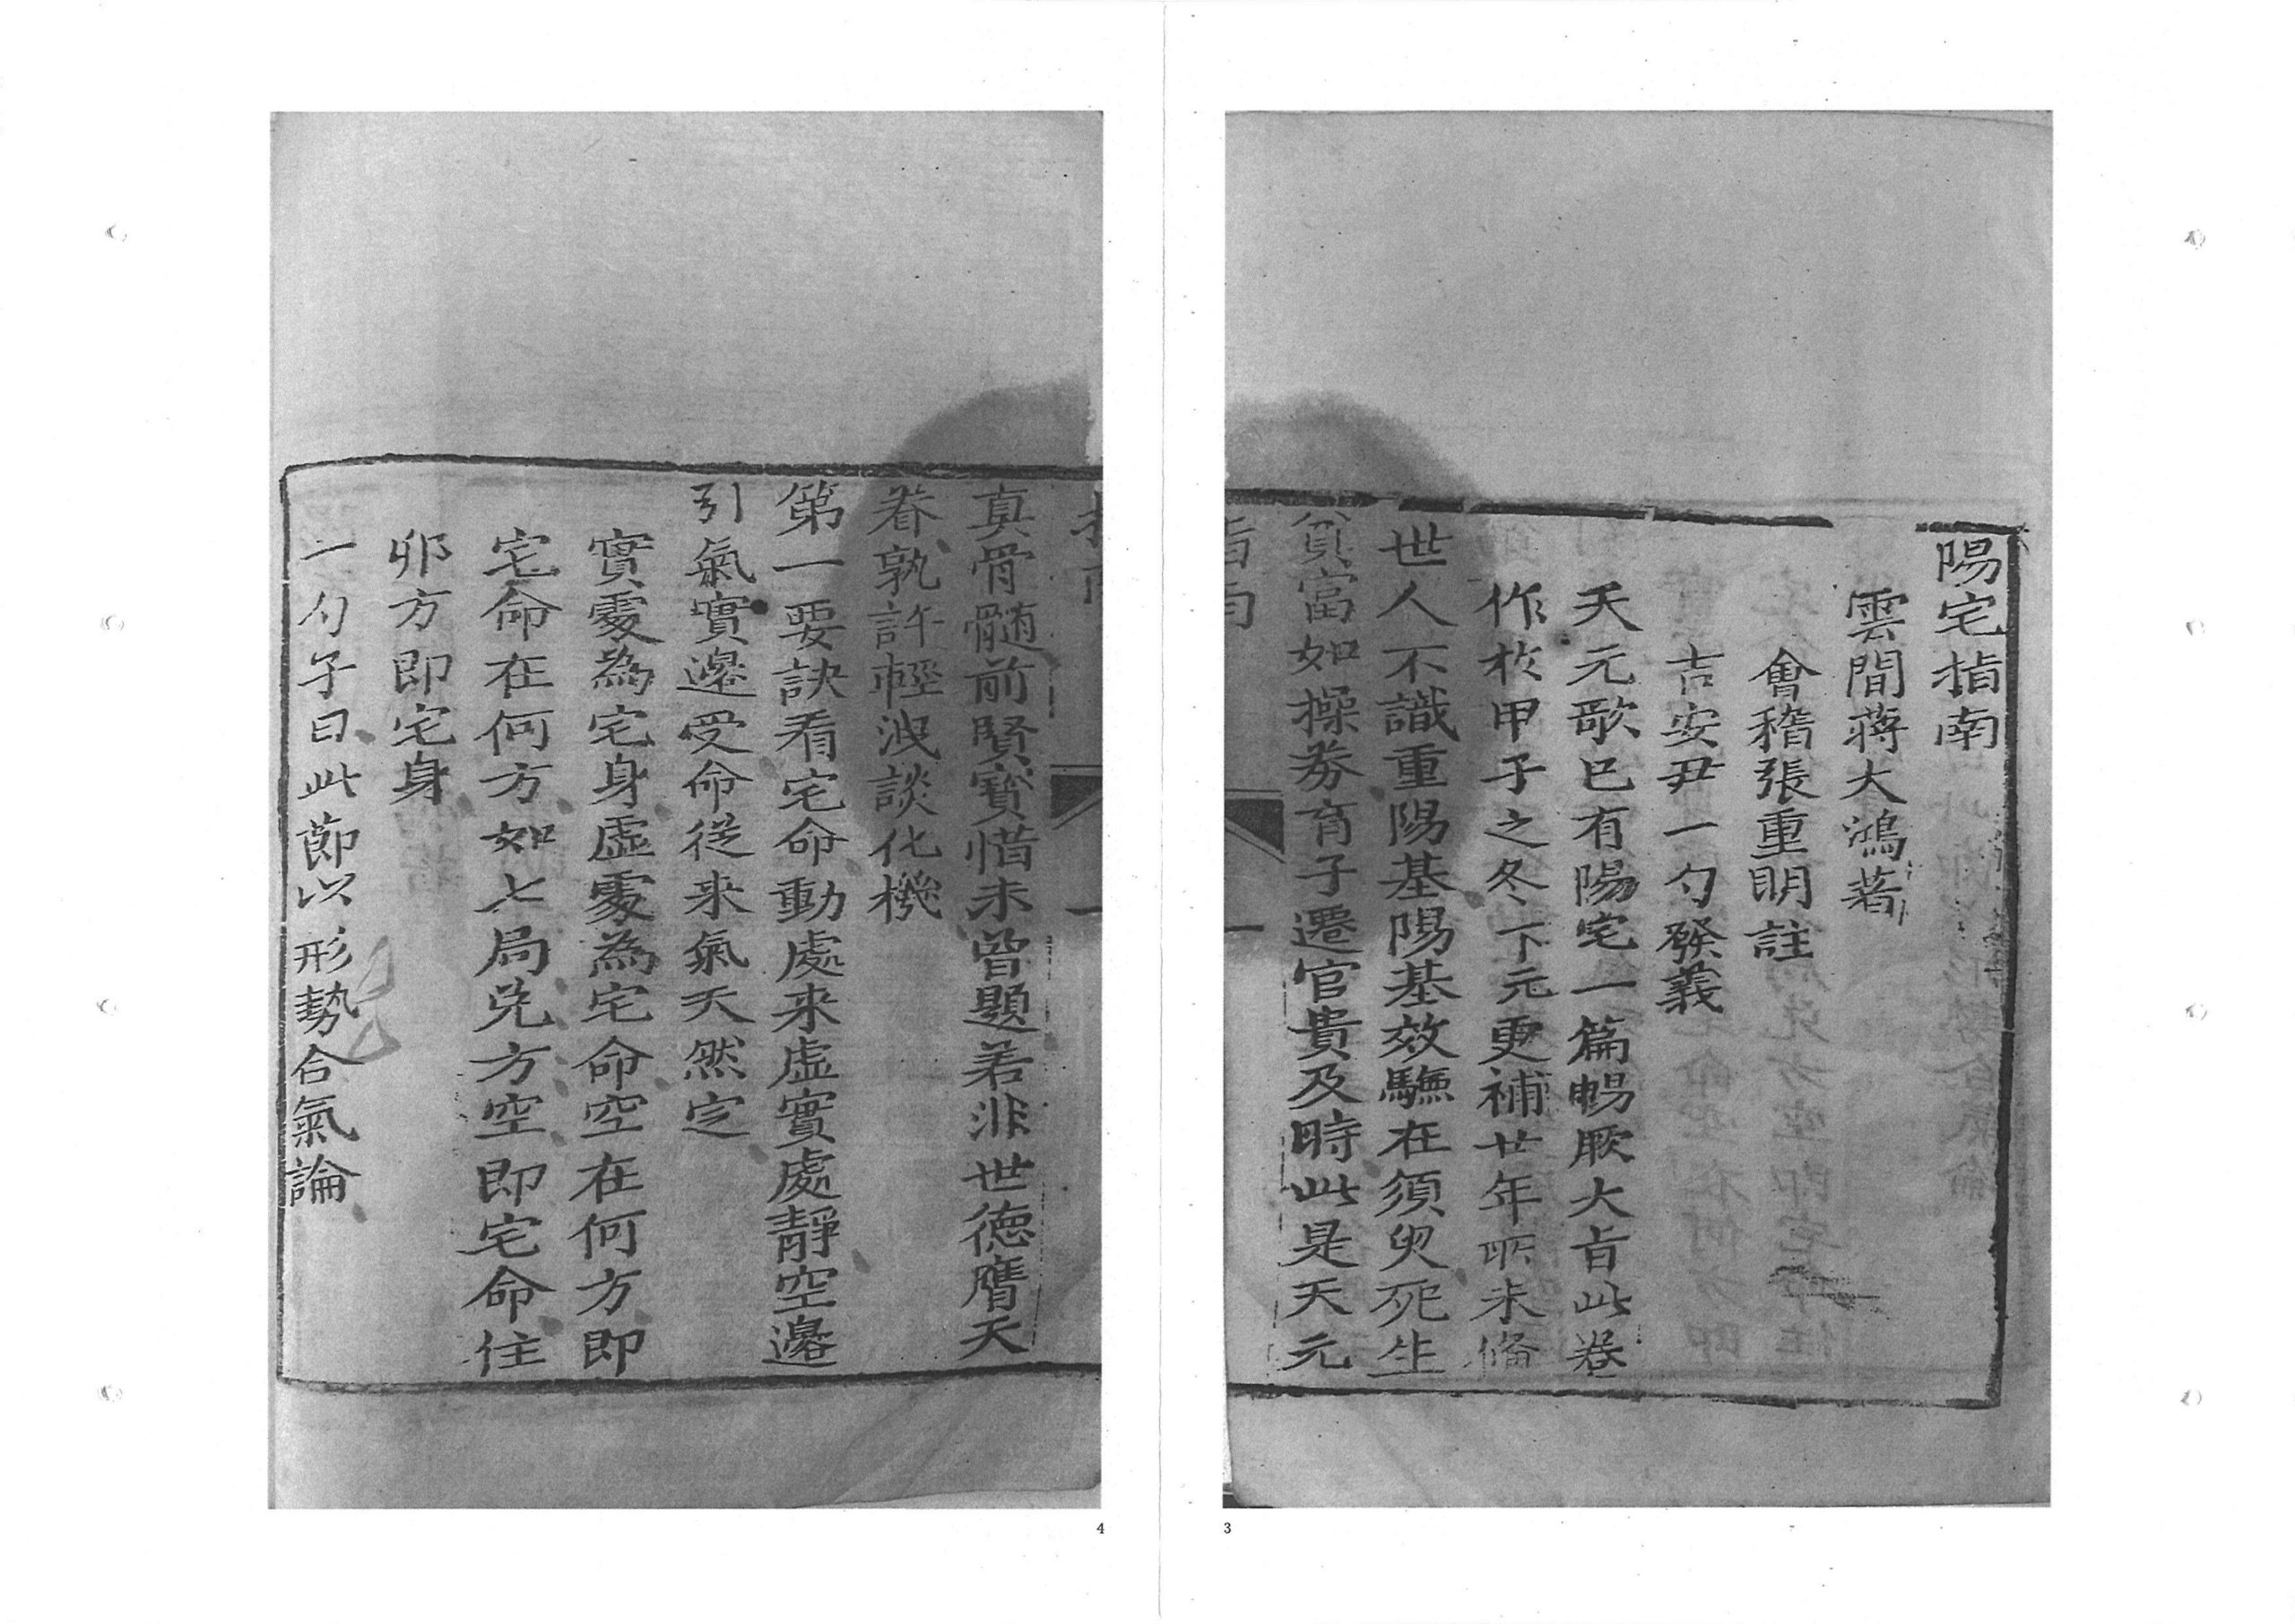 陽宅指南
雲間蔣大鴻著
會稽張重明註
吉安尹一勺發義
天元歌已有陽宅一篇暢厥大旨此卷
作於甲子之冬下元更補廿年所未備
世人不識重陽基陽基效驗在須臾死生
貧富如操券育子遷官貴及時此是天元
指南
一
真骨髓前賢寶惜未曾題若非世德膺天
眷孰許輕洩談化機
第一要訣看宅命動處來虛實處靜空邊
引氣實邊受命從來氣天然定
實處為宅身虛處為宅命空在何方即
宅命在何方如七局兌方空即宅命住
卯方即宅身
一勺子曰此節以形勢合氣論
3
4